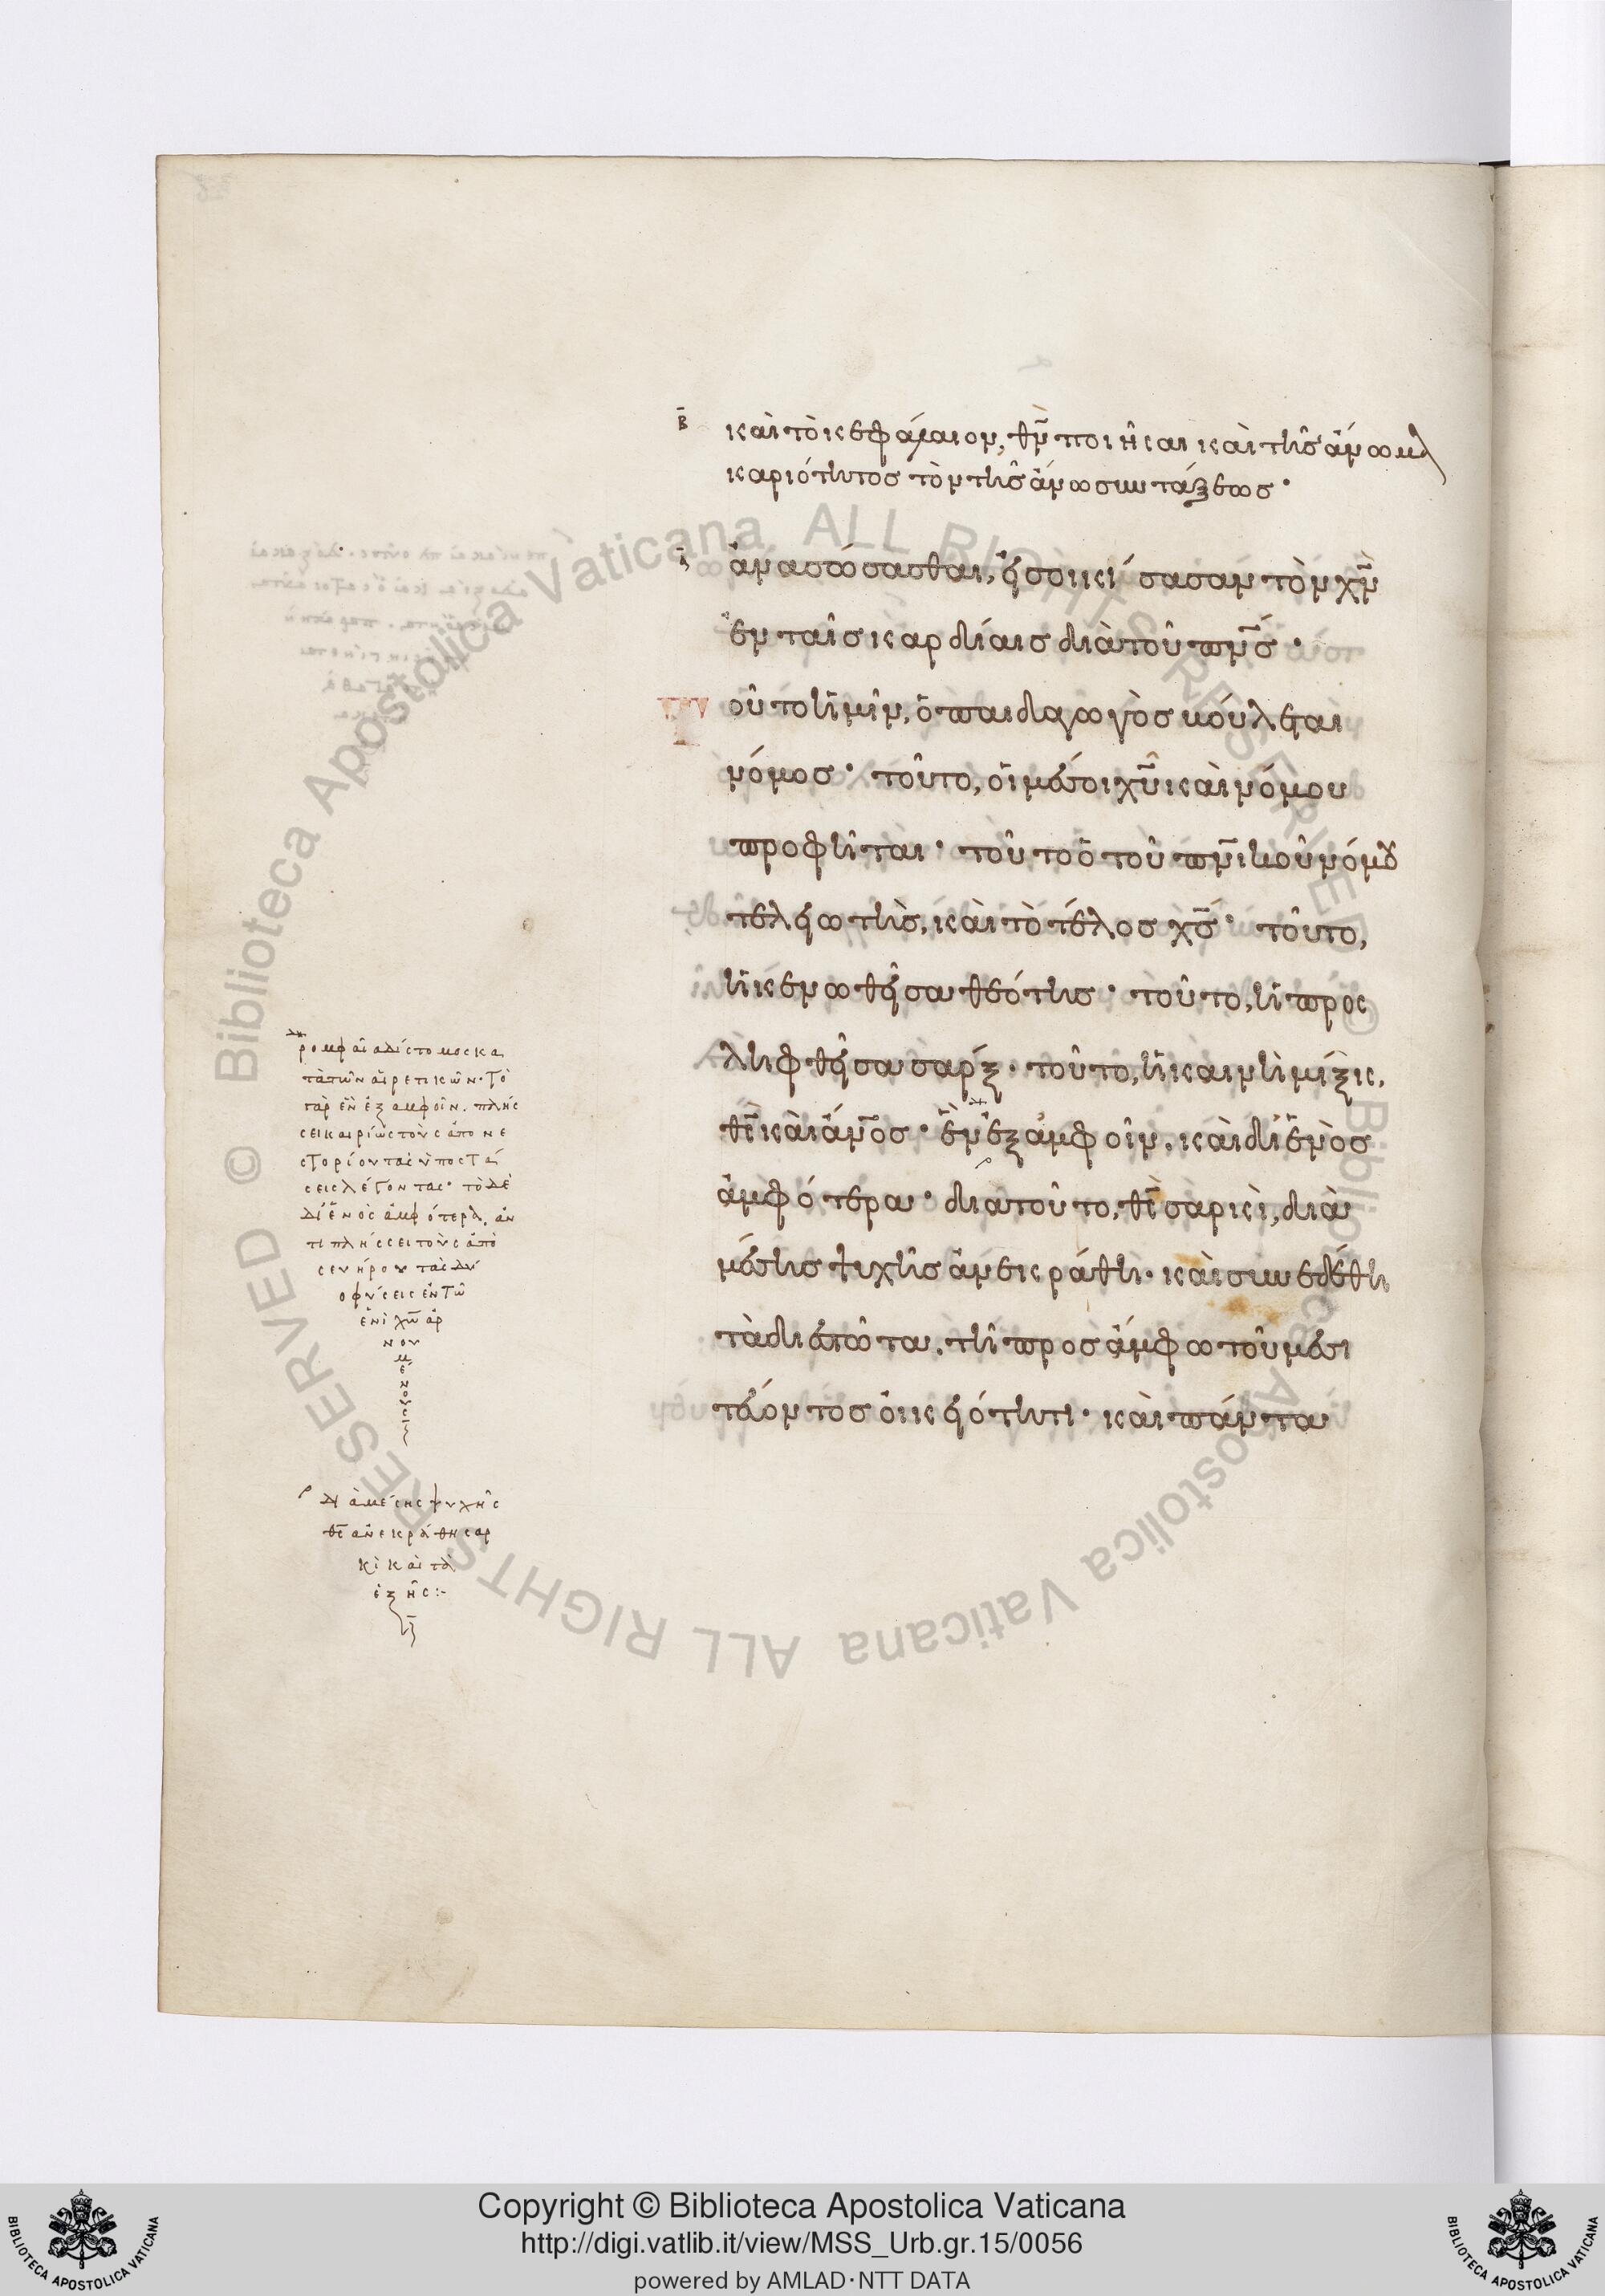 β̄
καὶ τὸ κεφάλαιον, θν̄ ποιῆσαι καὶ τῆς ἄνω μα
καριότητος τὸν τῆς ἄνω συντάξεως·
ἀνασώσασθαι, εἰσοικίσασαν τὸν χν̄
ἐν ταῖς καρδίαις διὰ τοῦ πνς̄·
τοῦτο ἡμῖν, ὁ παιδαγωγὸς βούλεται
νόμος· τοῦτο, οἱ μέσοι χῡ καὶ νόμου
προφῆται· τοῦτο ὁ τοῦ πνικοῦ νόμου
τελειωτὴς, καὶ τὸ τέλος χς̄· τοῦτο,
ἡ κενωθεῖσα θεότης· τοῦτο, ἡ προς
ληφθεῖσα σάρξ· τοῦτο, ἡ καινὴ μίξις,
θς̄ καὶ ἄνος̄· ἓν ἐξ ἀμφοῖν, καὶ δι' ἑνὸς
ἀμφότερα· διατοῦτο, θς̄ σαρκὶ, διὰ
μέσης ψυχῆς ἀνεκράθη· καὶ συνεδέθη
τὰ διεστῶτα, τῇ προς ἄμφω τοῦ μεσι
τεύοντος οἰκειότητι· καὶ πάντα
ῥομφαία δίστομος κα
τὰ τῶν αἱρετικῶν· τὸ
γὰρ ἓν ἐξ ἀμφοῖν. πλής
σει καιρίως τοὺς ἀπὸ νε
στορίου τὰς ὑποστά
σεις λέγοντας· τὸ δὲ
δι' ἑνὸς ἀμφότερα, ἀν
τιπλήσσει τοὺς ἀπὸ
σενήρου τὰς δύ
ο φύσεις ἐν τῶ
ἑνὶ χω̄ ἀρ
νου
μέ
νους
διὰ μέσης ψυχῆς
θς̄ ἀνεκράθη σαρ
κὶ καὶ τὰ
ἑξῆς:-
Copyright © Biblioteca Apostolica Vaticana
http://digi.vatlib.it/view/MSS_Urb.gr.15/0056
powered by AMLAD·NTT DATA
BIBLIOTECA APOSTOLICA VATICANA
BIBLIOTECA APOSTOLICA VATICANA
© Biblioteca Apostolica Vaticana ALL RIGHTS RESERVED
© Biblioteca Apostolica Vaticana ALL RIGHTS RESERVED